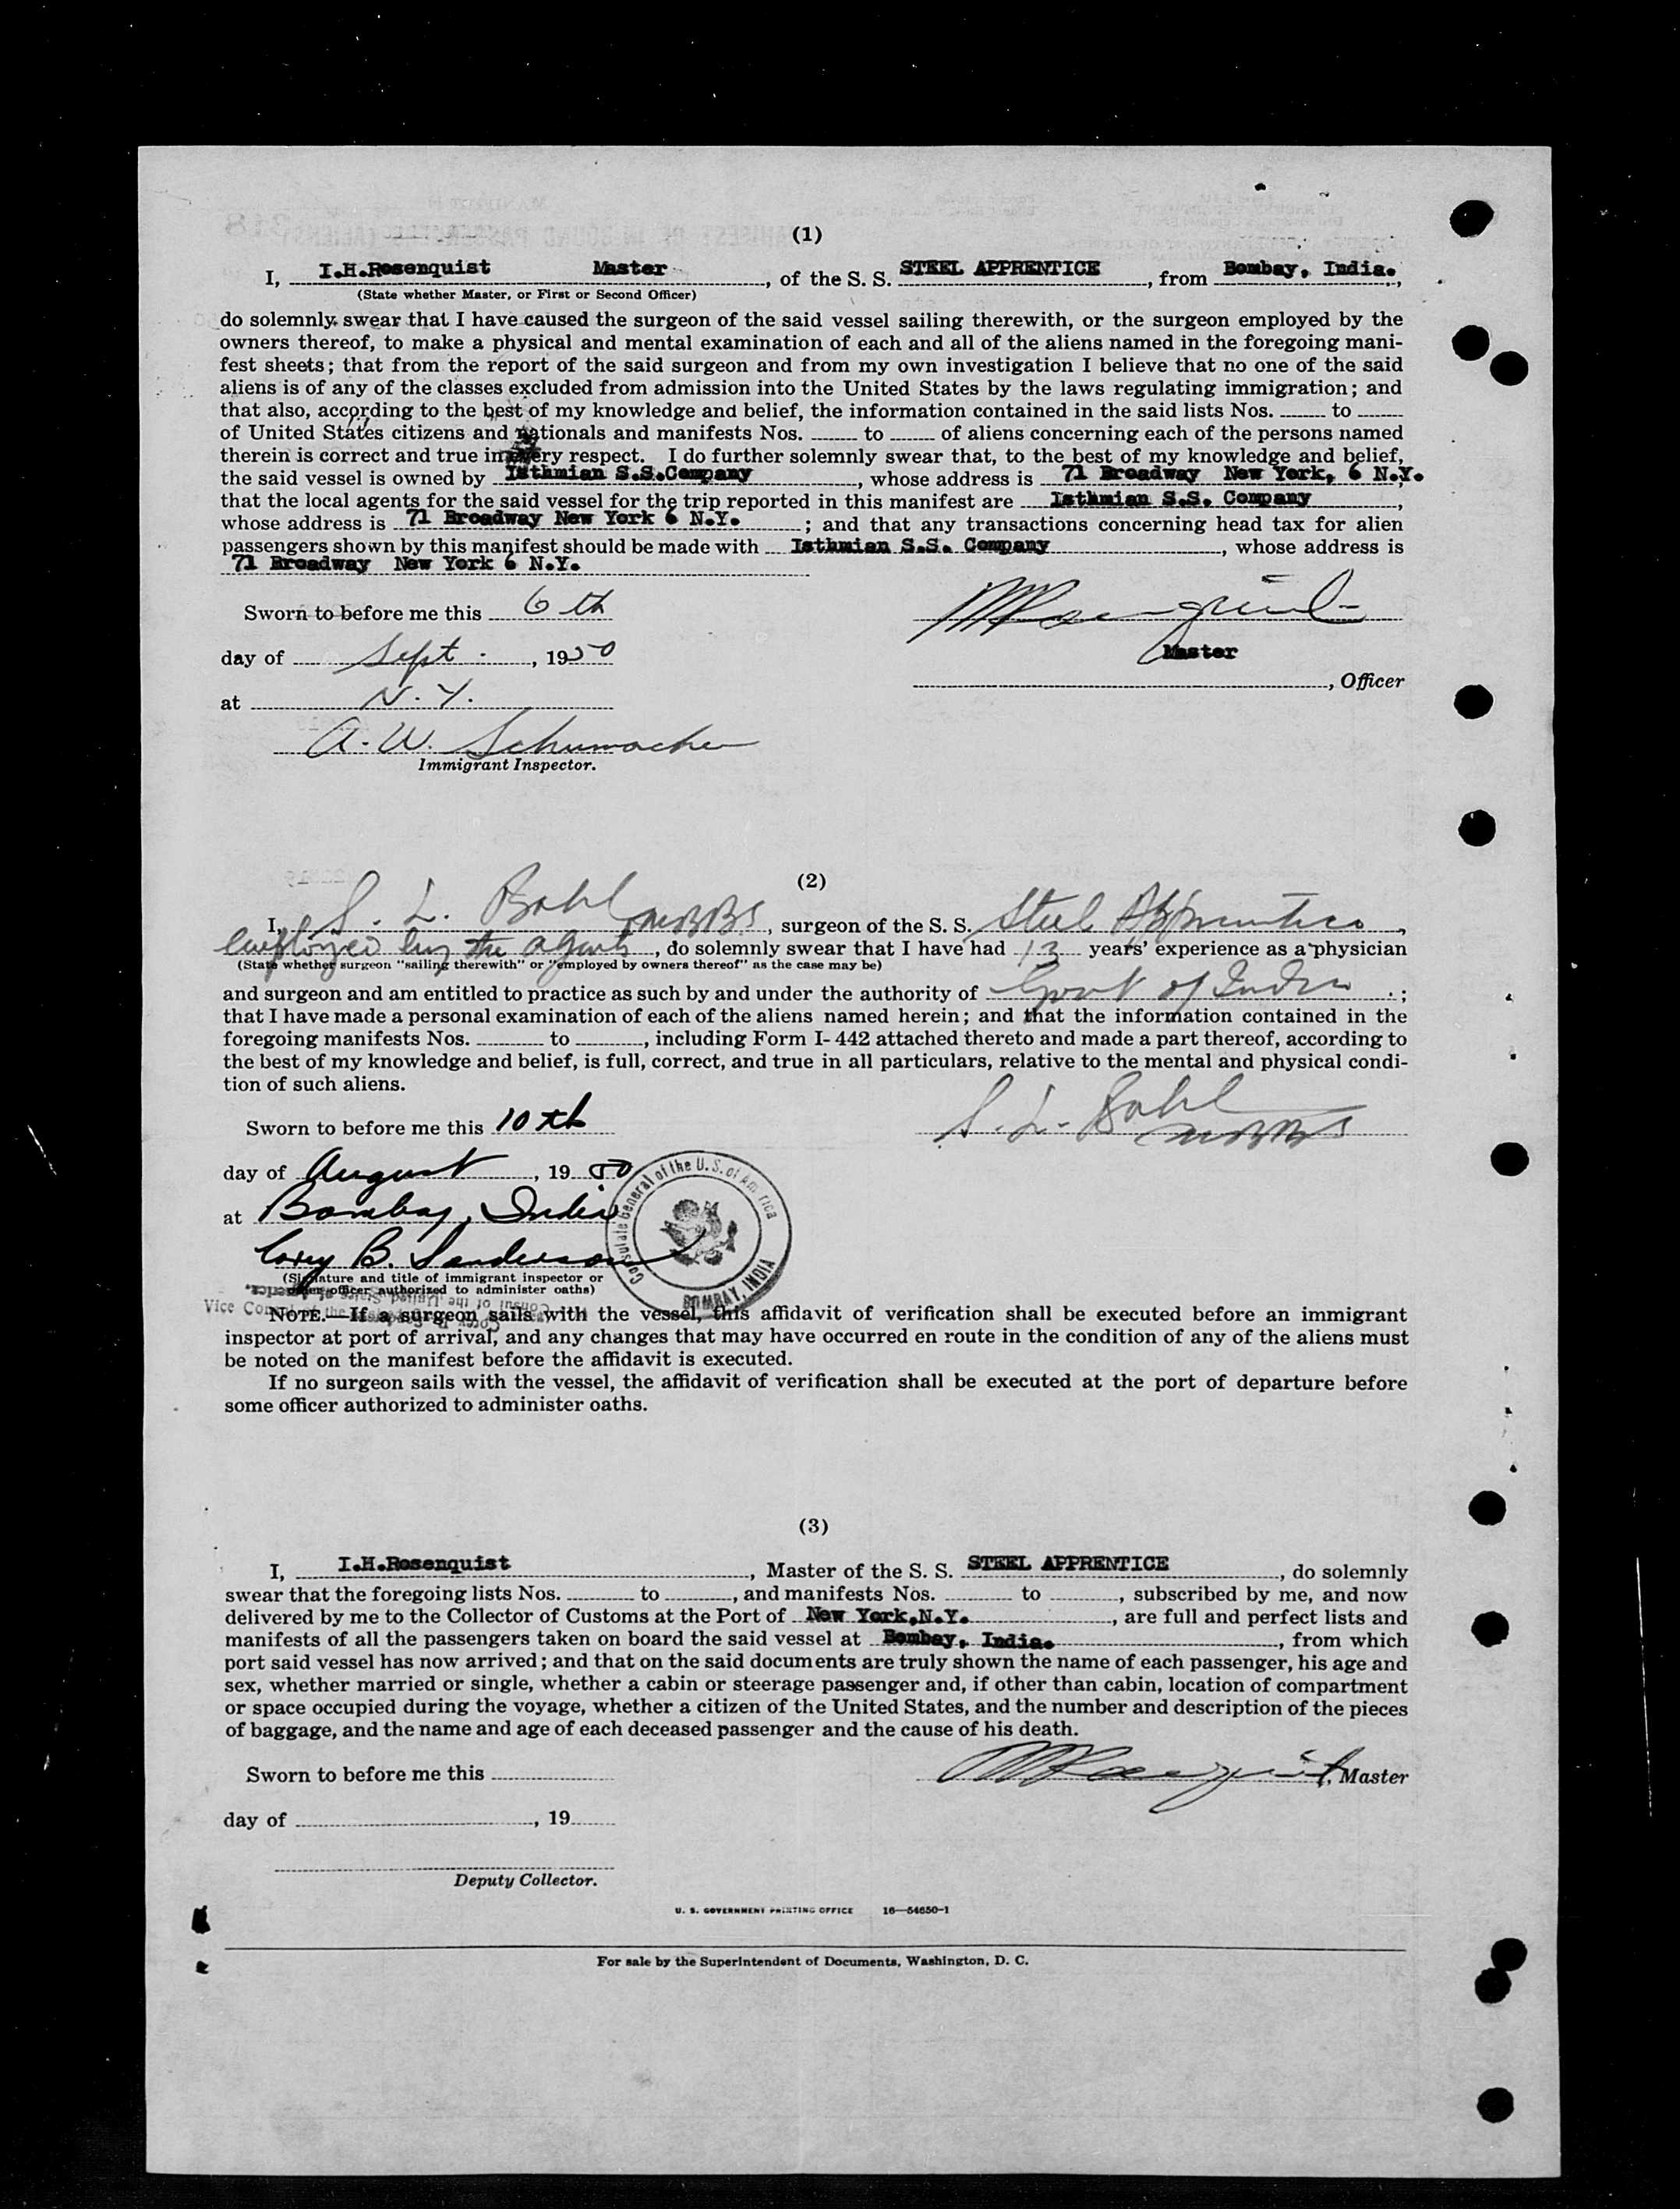 (1)
I, I.H.Rosenquist Master, of the S. S. STEEL APPRENTICE, from Bombay, India.,
(State whether Master, or First or Second Officer)
do solemnly swear that I have caused the surgeon of the said vessel sailing therewith, or the surgeon employed by the
owners thereof, to make a physical and mental examination of each and all of the aliens named in the foregoing mani-
fest sheets; that from the report of the said surgeon and from my own investigation I believe that no one of the said
aliens is of any of the classes excluded from admission into the United States by the laws regulating immigration; and
that also, according to the best of my knowledge and belief, the information contained in the said lists Nos. ........ to ........
of United States citizens and nationals and manifests Nos. ........ to ........ of aliens concerning each of the persons named
therein is correct and true in every respect. I do further solemnly swear that, to the best of my knowledge and belief,
the said vessel is owned by Isthmian S.S.Company, whose address is 71 Broadway New York, 6 N.Y.
that the local agents for the said vessel for the trip reported in this manifest are Isthmian S.S. Company,
whose address is 71 Broadway New York 6 N.Y.; and that any transactions concerning head tax for alien
passengers shown by this manifest should be made with Isthmian S.S. Company, whose address is
71 Broadway New York 6 N.Y.
Sworn to before me this 6th
day of Sept., 1950
Master
, Officer
at N.Y.
A. W. Schumacher
Immigrant Inspector.
(2)
I, S. L. Bahl MBBS, surgeon of the S. S. Steel Apprentice,
employed by the agents, do solemnly swear that I have had 13 years' experience as a physician
(State whether surgeon "sailing therewith" or "employed by owners thereof" as the case may be)
and surgeon and am entitled to practice as such by and under the authority of Govt of India;
that I have made a personal examination of each of the aliens named herein; and that the information contained in the
foregoing manifests Nos. ........ to ........, including Form I-442 attached thereto and made a part thereof, according to
the best of my knowledge and belief, is full, correct, and true in all particulars, relative to the mental and physical condi-
tion of such aliens.
S. L. Bahl
MBBS
Sworn to before me this 10th
day of August, 1950
at Bombay, India
Corey B. Sanderson
Consulate General of the U.S. of America
BOMBAY, INDIA
(Signature and title of immigrant inspector or
other officer authorized to administer oaths)
NOTE.—If a surgeon sails with the vessel, this affidavit of verification shall be executed before an immigrant
inspector at port of arrival, and any changes that may have occurred en route in the condition of any of the aliens must
be noted on the manifest before the affidavit is executed.
If no surgeon sails with the vessel, the affidavit of verification shall be executed at the port of departure before
some officer authorized to administer oaths.
(3)
I, I.H.Rosenquist, Master of the S. S. STEEL APPRENTICE, do solemnly
swear that the foregoing lists Nos. ........ to ........, and manifests Nos. ........ to ........, subscribed by me, and now
delivered by me to the Collector of Customs at the Port of New York,N.Y., are full and perfect lists and
manifests of all the passengers taken on board the said vessel at Bombay, India., from which
port said vessel has now arrived; and that on the said documents are truly shown the name of each passenger, his age and
sex, whether married or single, whether a cabin or steerage passenger and, if other than cabin, location of compartment
or space occupied during the voyage, whether a citizen of the United States, and the number and description of the pieces
of baggage, and the name and age of each deceased passenger and the cause of his death.
Sworn to before me this
, Master
day of ........, 19
Deputy Collector.
U. S. GOVERNMENT PRINTING OFFICE 16—54650-1
For sale by the Superintendent of Documents, Washington, D. C.